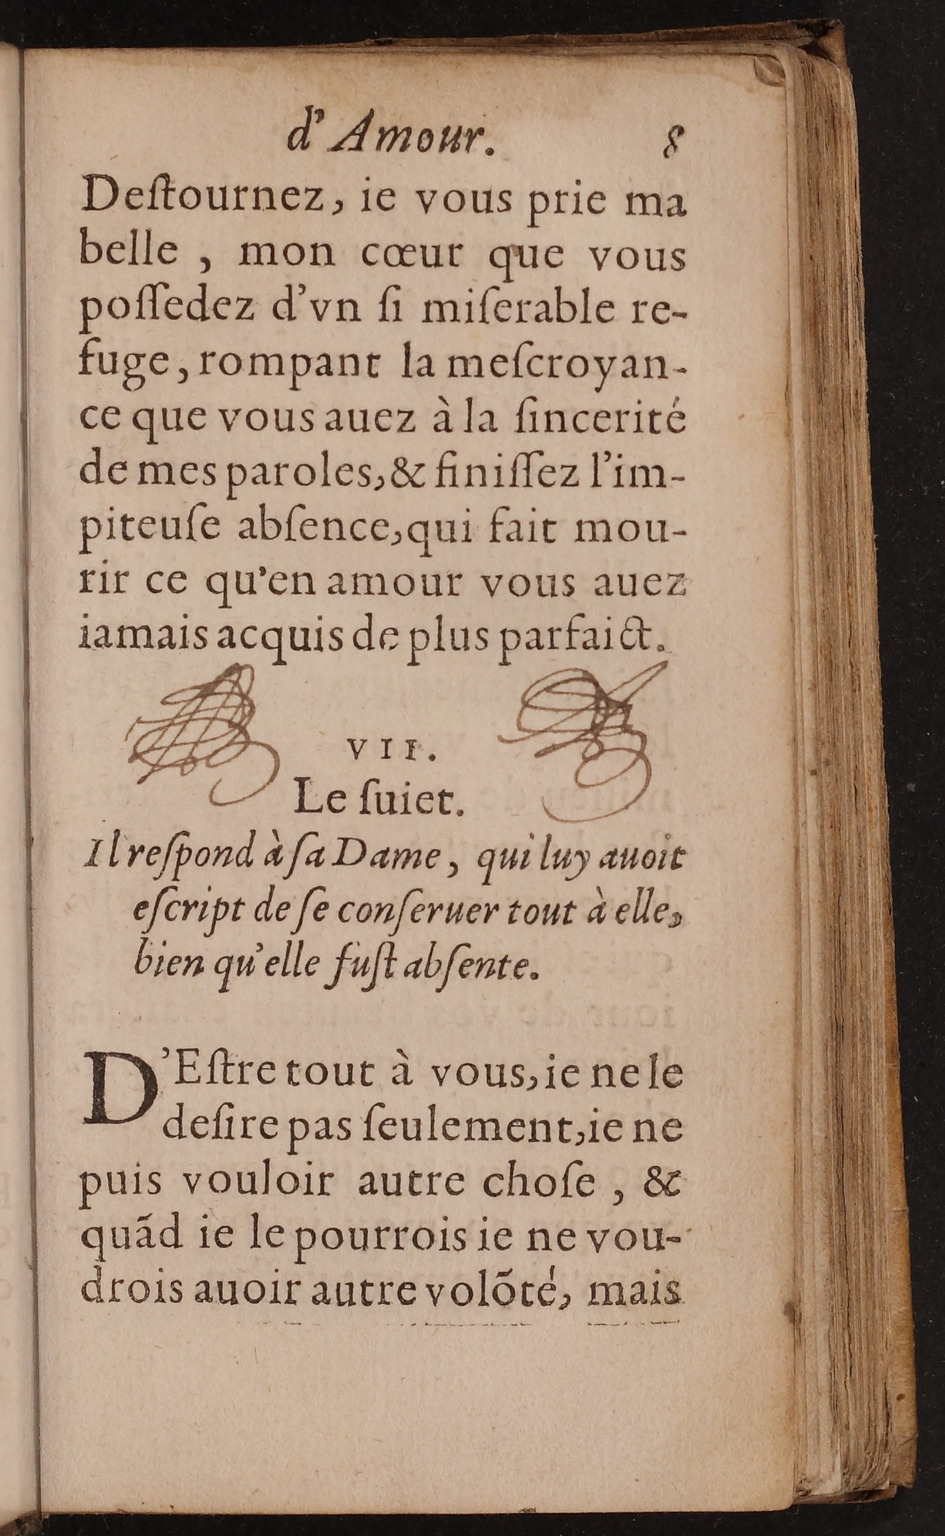 d'Amour. 8
Deſtournez, ie vous prie ma
belle , mon cœur que vous
poſſedez d'vn ſi miſerable re-
fuge, rompant la meſcroyan-
ce que vous auez à la ſincerité
de mes paroles, & finiſſez l'im-
piteuſe abſence, qui fait mou-
rir ce qu'en amour vous auez
iamais acquis de plus parfaict.
VII.
Le ſuiet.
Il reſpond à ſa Dame, qui luy auoit
eſcript de ſe conſeruer tout à elle,
bien qu'elle fuſt abſente.
D'Eſtre tout à vous, ie ne le
deſire pas ſeulement, ie ne
puis vouloir autre choſe , &
quãd ie le pourrois ie ne vou-
drois auoir autre volõté, mais